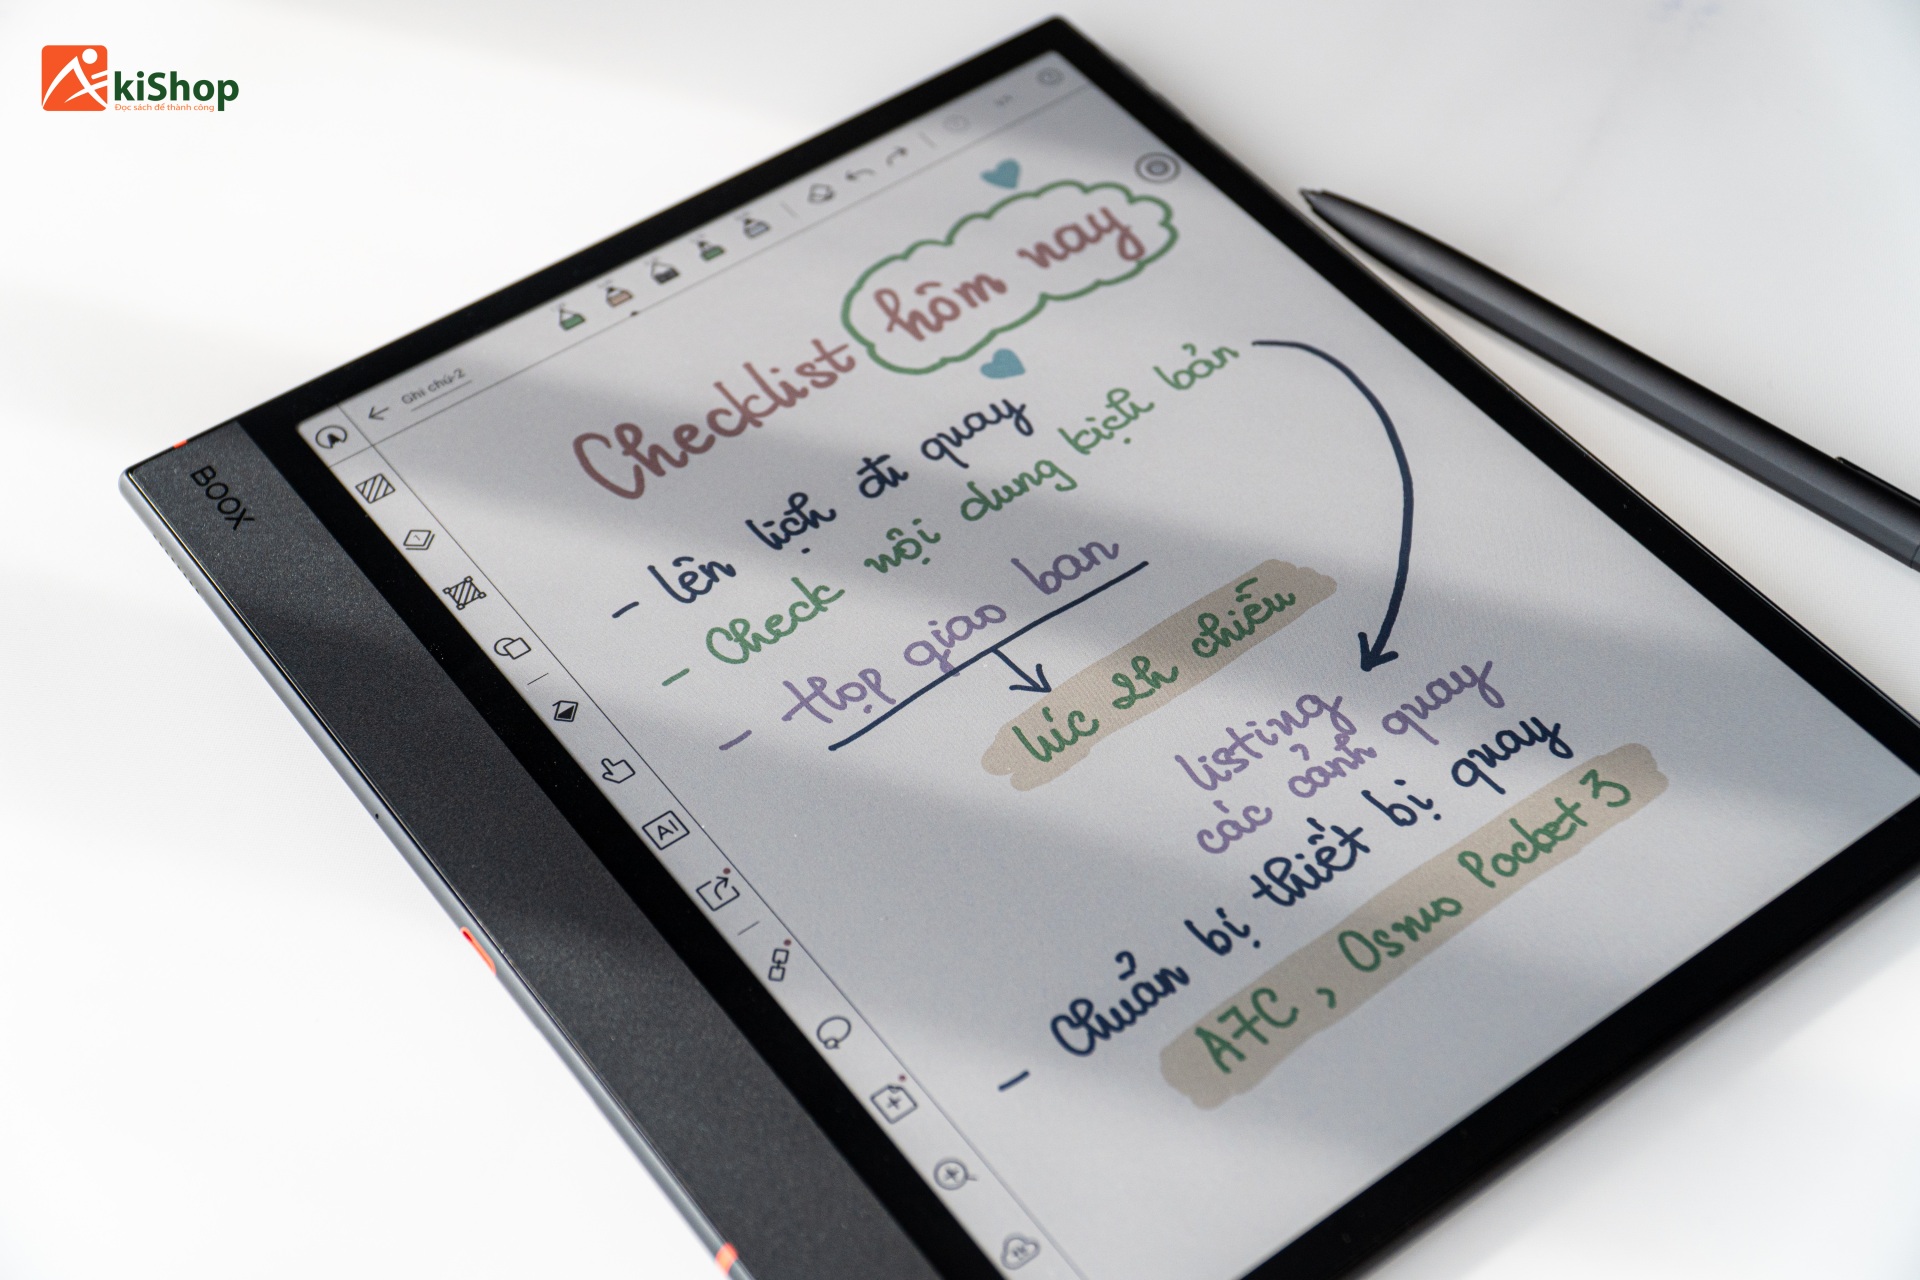 AkiShop
Đọc sách để thành công
BOOX
Ghi chú-2
Checklist hôm nay
- lên lịch đi quay
- Check nội dung kịch bản
- Họp giao ban
lúc 2h chiều
listing
các cảnh quay
- Chuẩn bị thiết bị quay
A7C, Osmo Pocket 3
AI